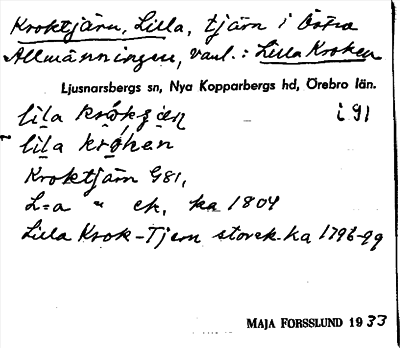 Kroktjärn, Lilla, tjärn i Östra
Allmänningen, vanl.: Lilla Kroken
Ljusnarsbergs sn, Nya Kopparbergs hd, Örebro län.
lila i 91
lila
Kroktjärn G81,
L:a " ek, ka 1804
Lilla Krok-Tjern storsk.ka 1796-99
MAJA FORSSLUND 1933